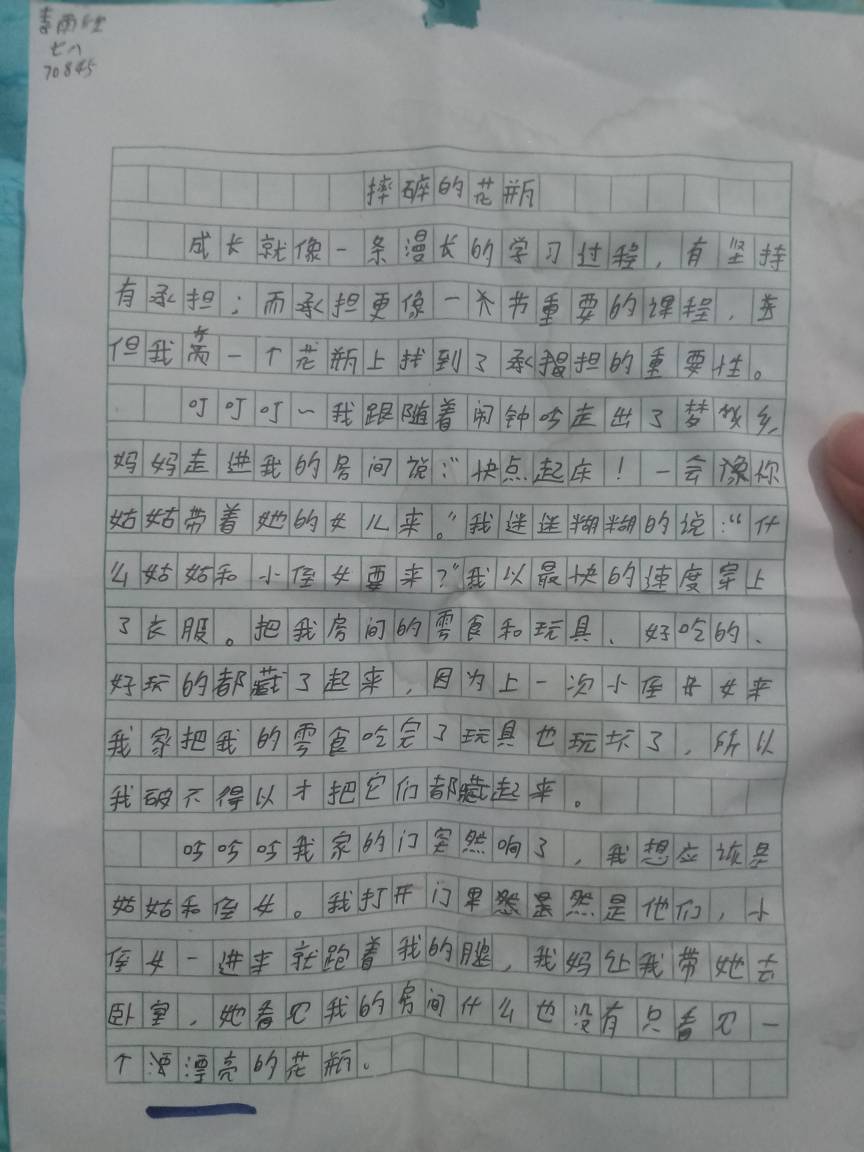 李雨
七八
70845
摔碎的花瓶
成长就像一条漫长的学习过程，有坚持
有承担；而承担更像一节重要的课程，
但我在一个花瓶上找到了承担的重要性。
叮叮叮～我跟随着闹钟走出了梦乡，
妈妈走进我的房间说：“快点起床！一会你
姑姑带着她的女儿来。”我迷迷糊糊的说：“什
么姑姑和小侄女要来？”我以最快的速度穿上
了衣服。把我房间的零食和玩具、好吃的、
好玩的都藏了起来，因为上一次小侄女来
我家把我的零食吃完了玩具也玩坏了，所以
我破不得以才把它们都藏起来。
咚咚咚我家的门突然响了，我想应该是
姑姑和侄女。我打开门果然是他们，小
侄女一进来就跑着我的腿，我妈让我带她去
卧室，她看见我的房间什么也没有只看见一
个漂亮的花瓶。